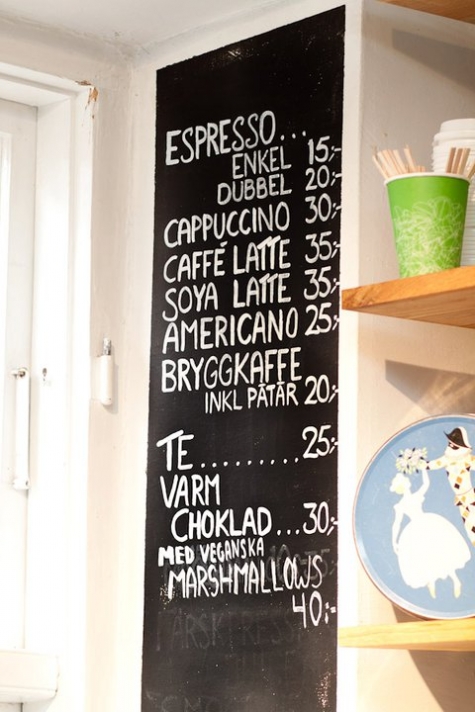 ESPRESSO...
ENKEL 15:-
DUBBEL 20:-
CAPPUCCINO 30:-
CAFFÉ LATTE 35:-
SOYA LATTE 35:-
AMERICANO 25:-
BRYGGKAFFE
INKL PÄTÅR 20:-
TE..........25:-
VARM
CHOKLAD...30:-
MED VEGANSKA
MARSHMALLOWS
40:-